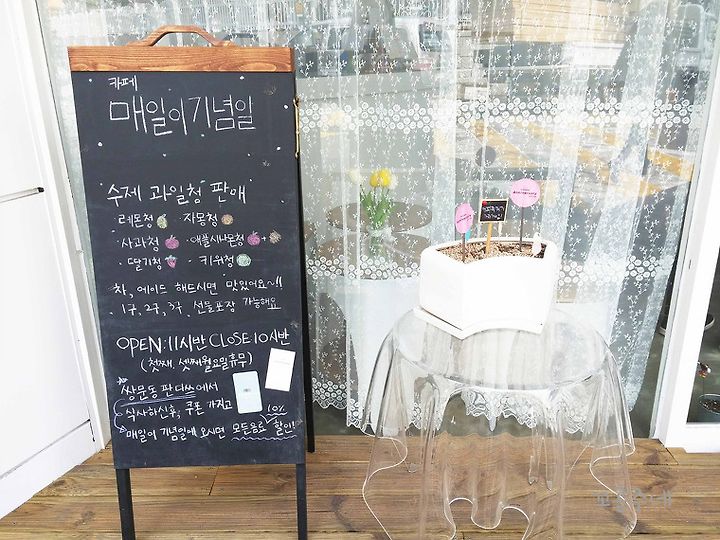 카페
매일이기념일
수제 과일청 판매
· 레몬청 · 자몽청
· 사과청 · 애플시나몬청
· 딸기청 · 키위청
차, 에이드 해드시면 맛있어요~!!
1구, 2구, 3구 선물포장 가능해요
OPEN:11시반 CLOSE10시반
(첫째, 셋째월요일휴무)
쌍문동 판다쓰에서
식사하신후, 쿠폰 가지고
10%
매일이 기념일에 오시면 모든음료 할인!